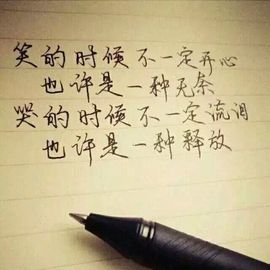 笑的时候不一定开心
也许是一种无奈
哭的时候不一定流泪
也许是一种释放